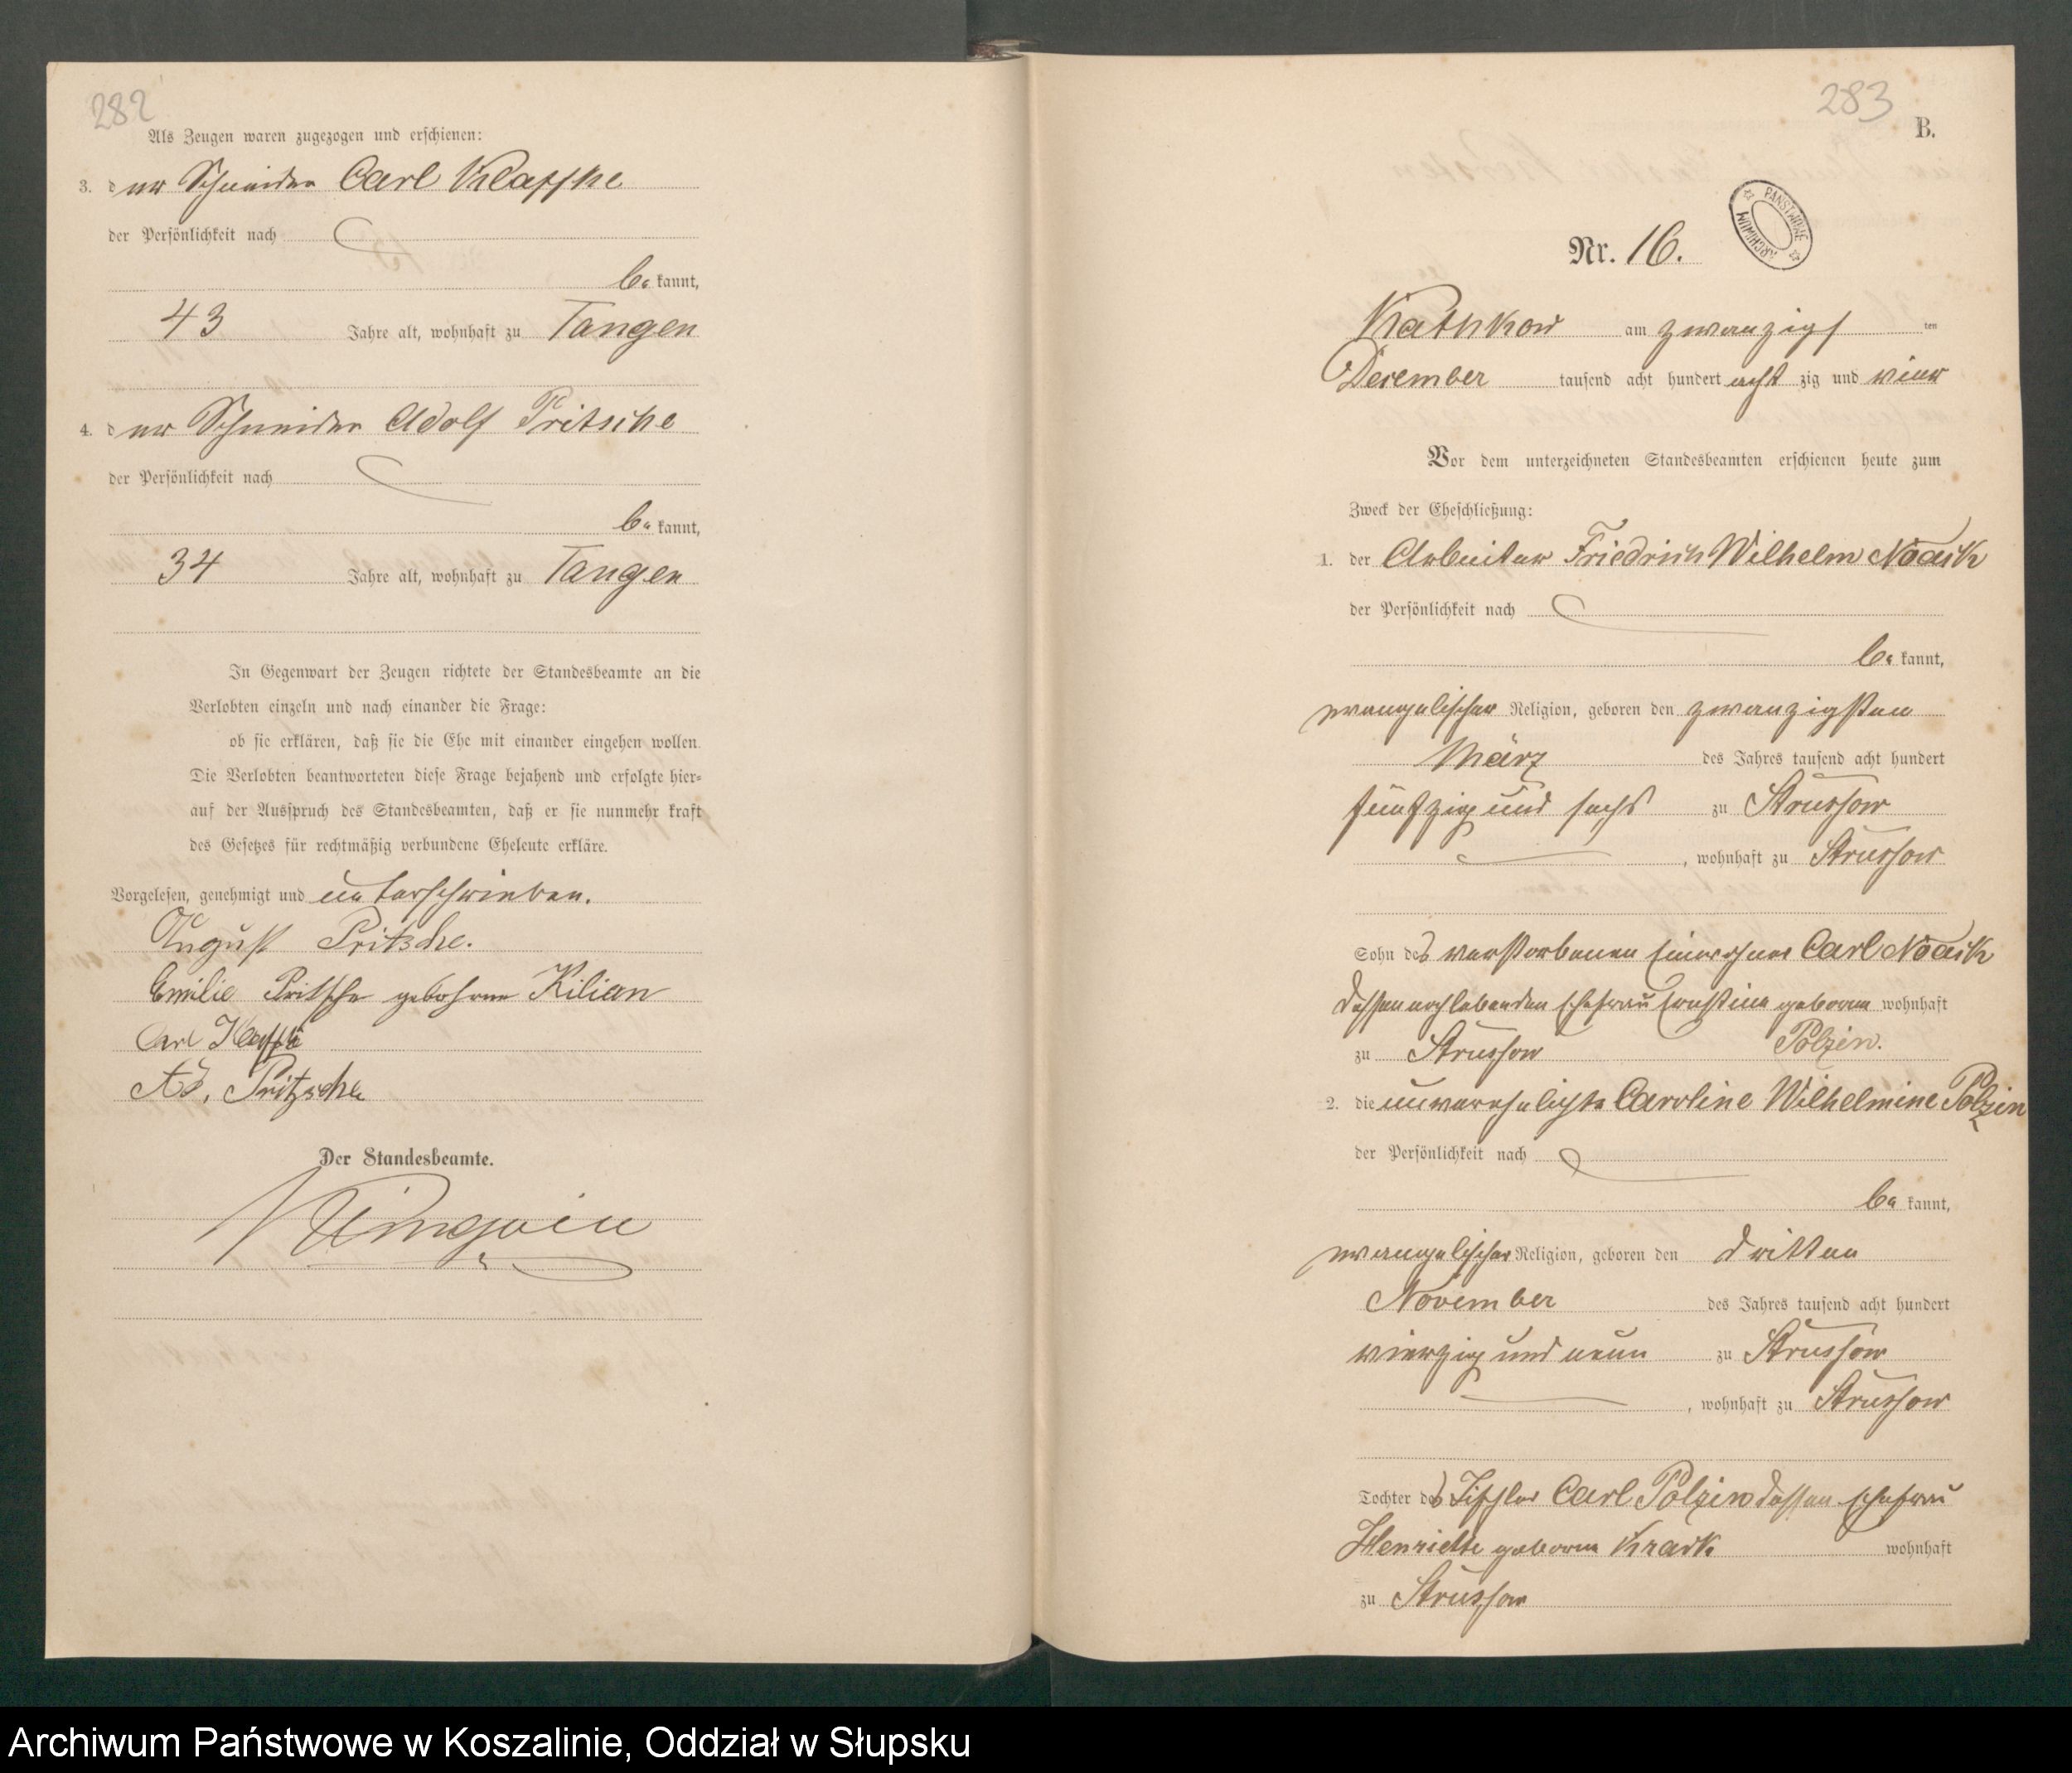 282
Als Zeugen waren zugezogen und erschienen:
3. der Schneider Carl Klaffke
der Persönlichkeit nach
be kannt,
43 Jahre alt, wohnhaft zu Tangen
4. der Schneider Adolf Pritsche
der Persönlichkeit nach
be kannt,
34 Jahre alt, wohnhaft zu Tangen
In Gegenwart der Zeugen richtete der Standesbeamte an die
Verlobten einzeln und nach einander die Frage:
ob sie erklären, daß sie die Ehe mit einander eingehen wollen.
Die Verlobten beantworteten diese Frage bejahend und erfolgte hier-
auf der Ausspruch des Standesbeamten, daß er sie nunmehr kraft
des Gesetzes für rechtmäßig verbundene Eheleute erkläre.
Vorgelesen, genehmigt und unterschrieben.
August Pritsche.
Emilie Pritsche geborene Kilian
Carl
Ad. Pritzsche
Der Standesbeamte.
283
B.
PAŃSTWOWE ARCHIWUM
Nr. 16.
Kathkow am zwanzigs ten
Dezember tausend acht hundert acht zig und vier
Vor dem unterzeichneten Standesbeamten erschienen heute zum
Zweck der Eheschließung:
1. der Arbeiter Friedrich Wilhelm Noack
der Persönlichkeit nach
be kannt,
evangelischer Religion, geboren den zwanzigsten
März des Jahres tausend acht hundert
fünfzig und sechs zu Strussow
, wohnhaft zu Strussow
Sohn des verstorbenen Einwohner Carl Noack
dessen noch lebenden Ehefrau Ernstine geborene wohnhaft
zu Strussow Polzin.
2. die unverehelichte Caroline Wilhelmine Polzin
der Persönlichkeit nach
be kannt,
evangelischer Religion, geboren den dritten
November des Jahres tausend acht hundert
vierzig und neun zu Strussow
, wohnhaft zu Strussow
Tochter des Tischler Carl Polzin dessen Ehefrau
Henriette geborene Krack wohnhaft
zu Strussow
Archiwum Państwowe w Koszalinie, Oddział w Słupsku